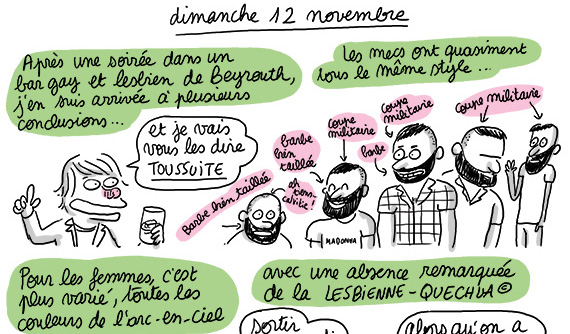 dimanche 12 novembre
Après une soirée dans un
bar gay et lesbien de Beyrouth,
j'en suis arrivée à plusieurs
conclusions...
et je vais
vous les dire
TOUSSUITE
Les mecs ont quasiment
tous le même style...
Barbe bien taillée
ah tiens:
calvitie!
barbe
bien
taillée
coupe
militaire
MADONNA
coupe
militaire
barbe
coupe militaire
Pour les femmes, c'est
plus varié, toutes les
couleurs de l'arc-en-ciel
avec une absence remarquée
de la LESBIENNE-QUECHUA©
sortir
alors qu'on a